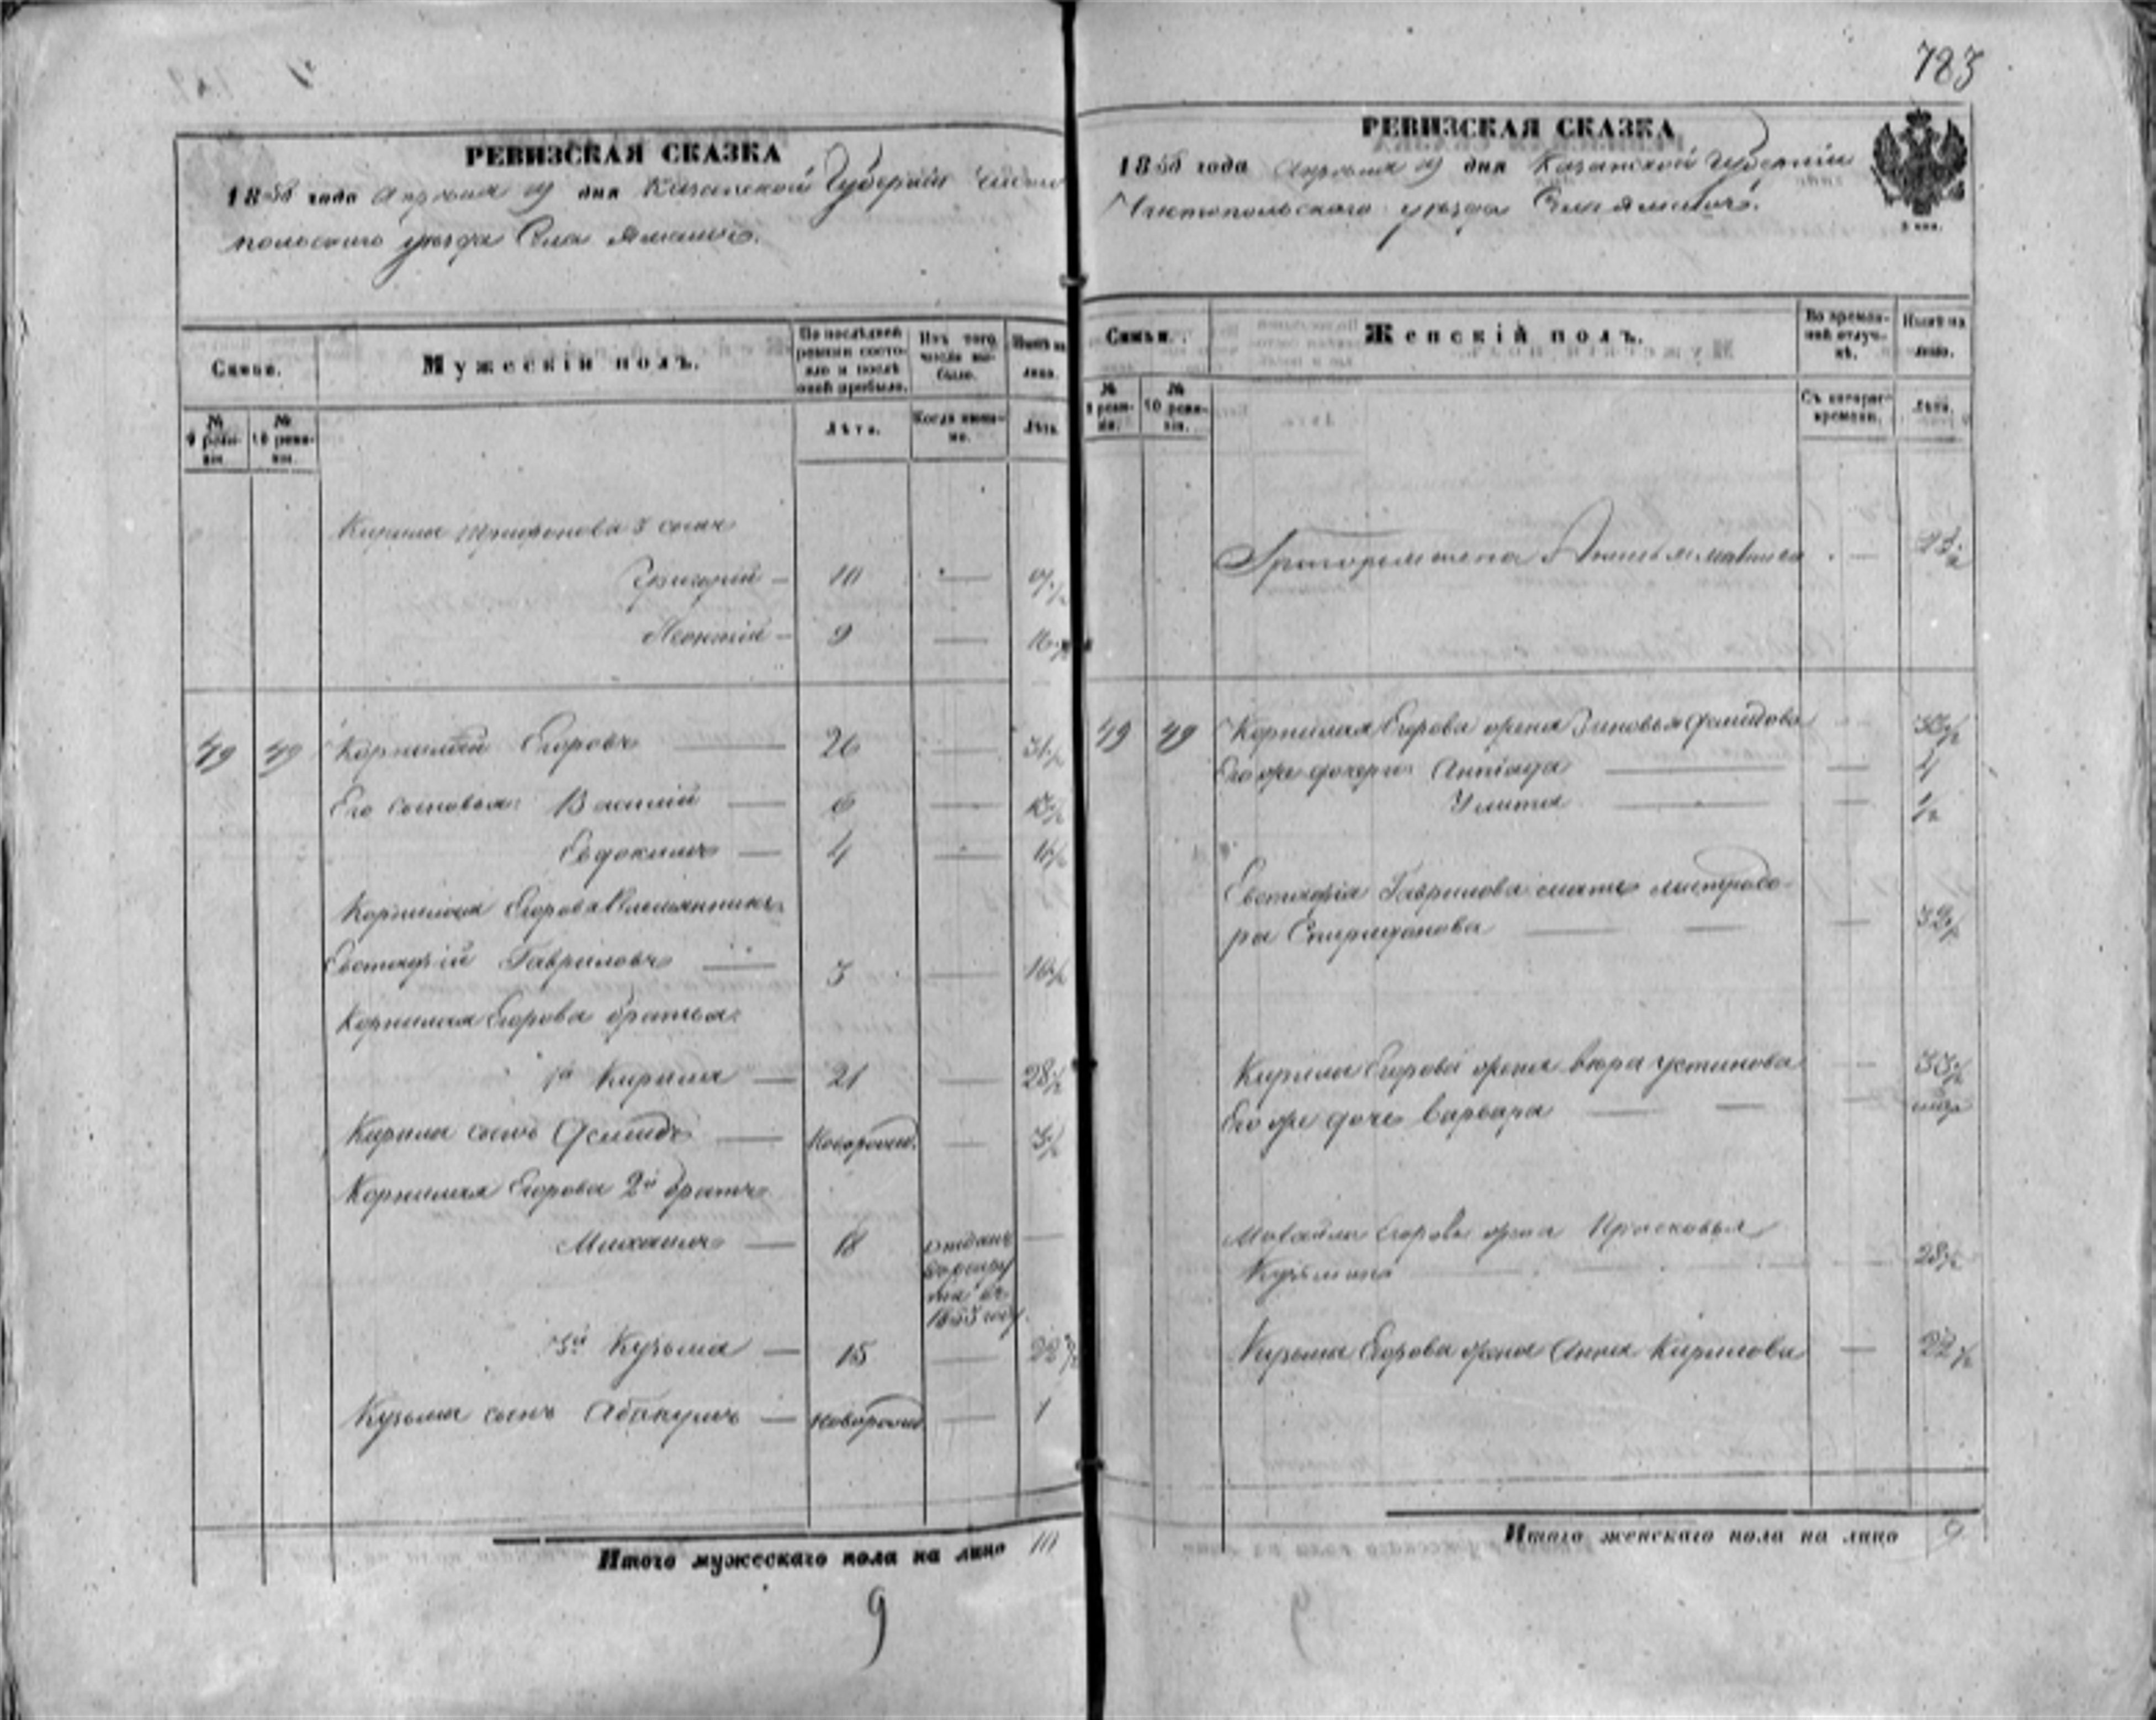 РЕВИЗСКАЯ СКАЗКА
1858 года Апреля дня Казанской Губернии Чисто
польского уезда Села Ямашъ.
Семьи.
Мужескій полъ.
По послѣдней ревизіи состояло и послѣ оной прибыло.
Изъ того числа выбыло.
Нынѣ на лицо.
№ 9 ревизіи.
№ 10 ревизіи.
Лѣта.
Когда именно.
Лѣта.
Кирила Трифонова 3 сынъ
Григорій — 10 —
Леонтій — 9 — 16½
49 49 Корнилей Егоровъ — 26 — 31½
Его сыновья: Василій — 6 —
Евдокимъ — 4 —
Корнилая Егорова племянникъ
Евстафій Гавриловъ — 3 — 10½
Корнилая Егорова братья:
1й Кирила — 21 — 28½
Кирила сынъ Демидъ — новорожд. — 3½
Корнилая Егорова 2й братъ
Михаилъ — 18 отданъ —
в рекру
ты въ
1855 году
3й Кузьма — 15 — 22½
Кузьма сынъ Абакумъ — новорожд — 1
Итого мужескаго пола на лицо 10
9
783
РЕВИЗСКАЯ СКАЗКА
1858 года Апреля дня Казанской Губерніи
Чистопольскаго уезда Села Ямашъ.
3 коп.
Семьи.
Женскій полъ.
Во временной отлучкѣ.
Нынѣ на лицо.
№ 9 ревизіи.
№ 10 ревизіи.
Съ котораго времени.
Лѣта.
Григорья жена —
49 49 Корнилая Егорова жена Зиновья Демидова —
Его же дочери: Аннида — 4
Улита — ½
Евстафія Гаврилова мать
Спиридонова — 32½
Кирила Егорова жена Вера Устинова — 33½
Его же дочь Варвара —
Михайла Егорова жена Прасковья
Кузьмина — 28½
Кузьма Егорова жена Анна Кирилова — 22½
Итого женскаго пола на лицо 9